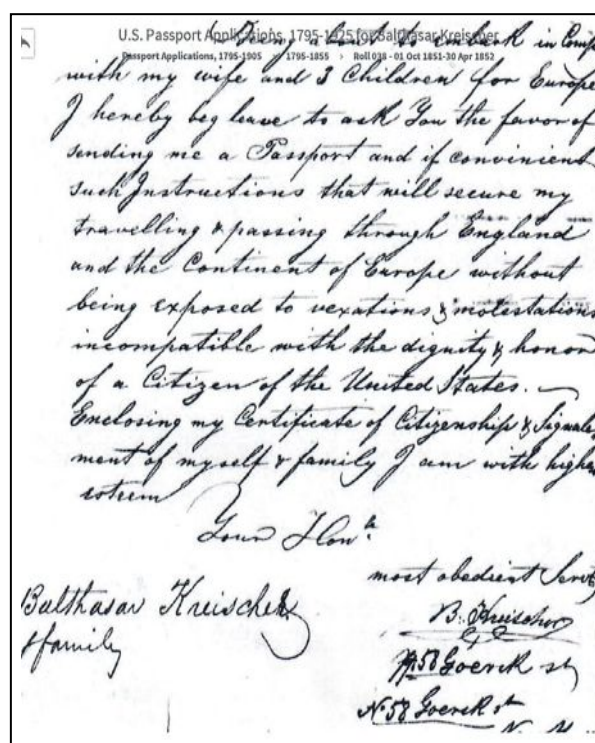 U.S. Passport Applications, 1795-1925 for Balthasar Kreischer
Passport Applications, 1795-1905 › 1795-1855 › Roll 038 - 01 Oct 1851-30 Apr 1852
Being about to embark in Comp
with my wife and 3 Children for Europe
I hereby beg leave to ask You the favor of
sending me a Passport and if convinient
such Instructions that will secure my
travelling & passing through England
and the Continent of Europe without
being exposed to vexations & molestations
incompatible with the dignity & honor
of a Citizen of the United States. —
Enclosing my Certificate of Citizenship & Signale
ment of myself & family I am with highes
esteem
Your Hon.
most obedient Servt
Balthasar Kreischer
& family
B. Kreischer
58 Goerck st
No 58 Goerck st
N. Y.